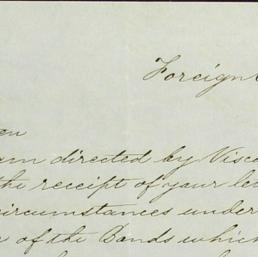 Foreign
en
am directed by Visc
the receipt of your le
ircumstances under
of the Bonds which